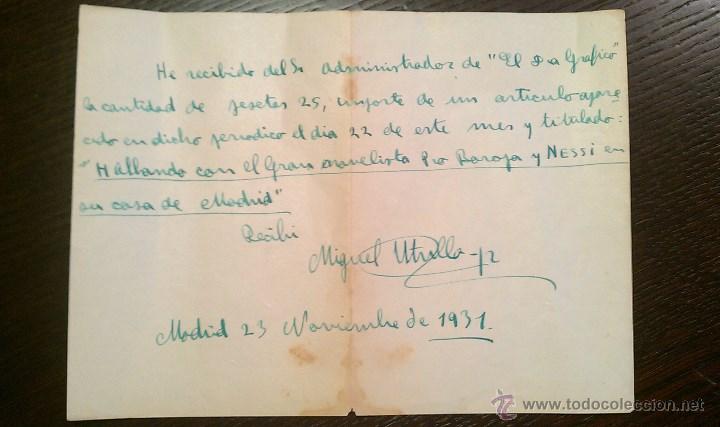 He recibido del Sr administrador de "El Dia Grafico"
la cantidad de pesetas 25, importe de un articulo apare
cido en dicho periodico el dia 22 de este mes y titulado:
"Hablando con el Gran novelista Pio Baroja y NESSI en
su casa de Madrid"
Recibi
Miguel Utrillo-jr
Madrid 23 Noviembre de 1931.
www.todocoleccion.net